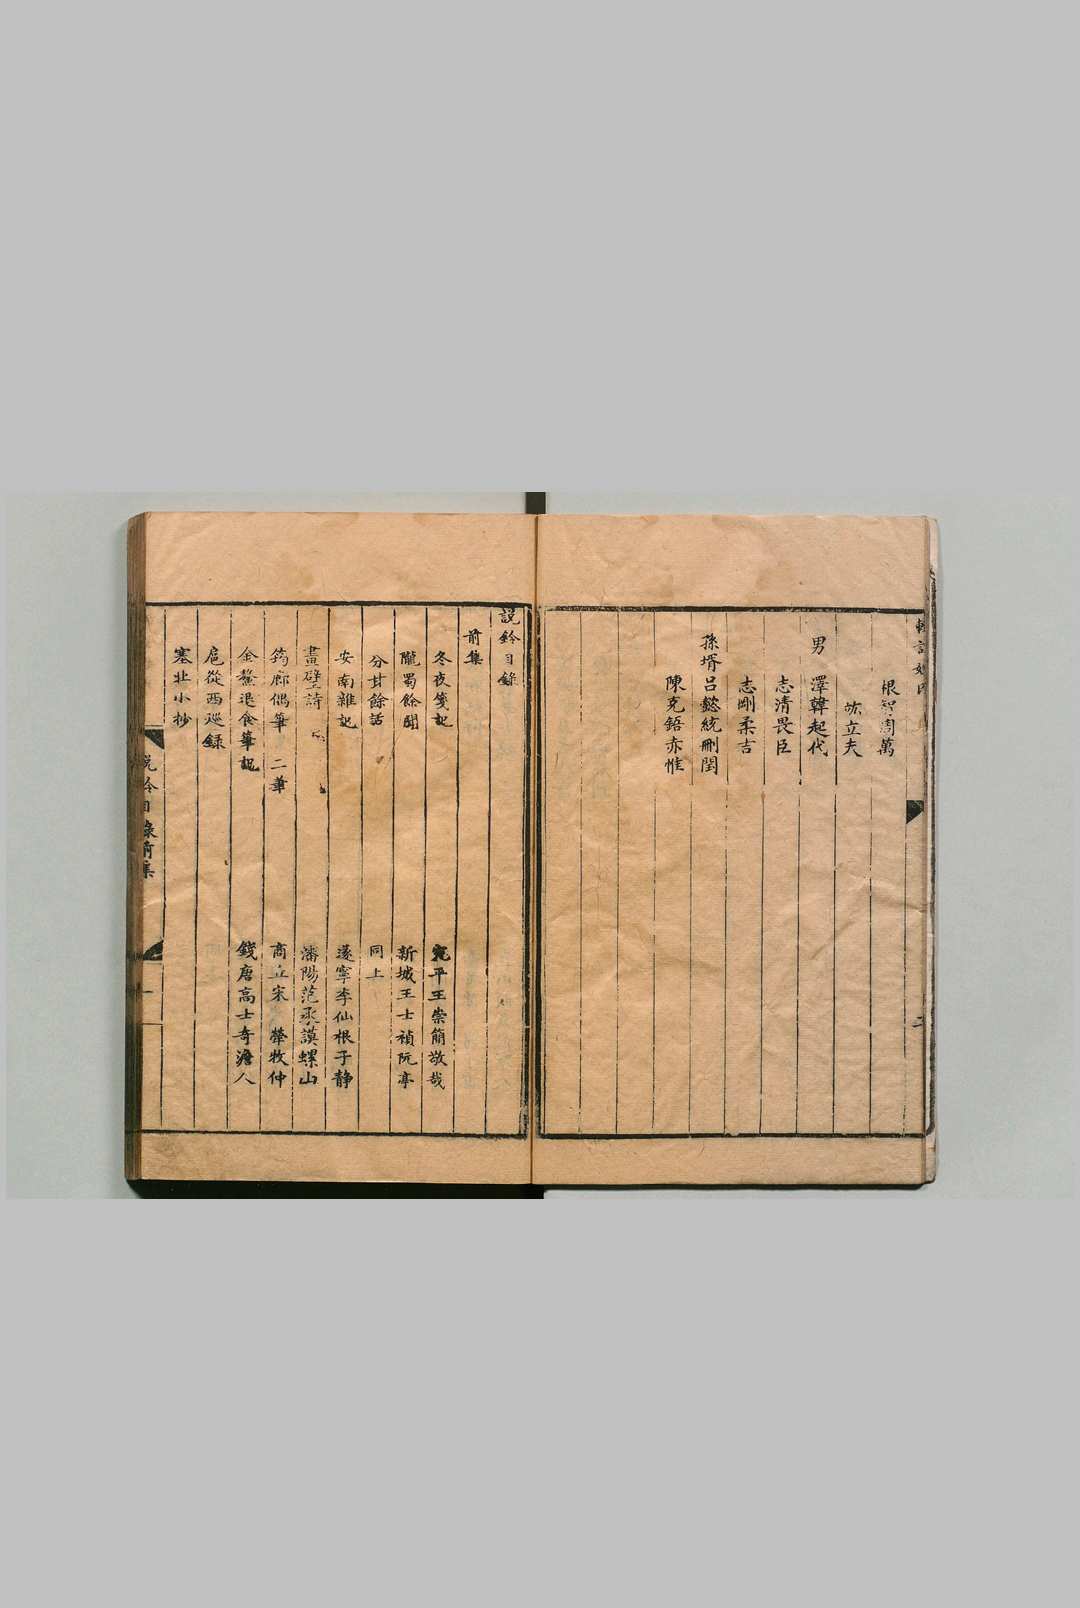 根智周萬
竑立夫
男　澤韓起代
志清畏臣
志剛柔吉
孫壻呂懿統刪閏
陳克鋙赤惟
說鈴目錄
前集
冬夜箋記　宛平王崇簡敬哉
隴蜀餘聞　新城王士禎阮亭
分甘餘話　同上
安南雜記　遂寧李仙根子靜
畫壁詩　瀋陽范承謨螺山
筠廊偶筆　二筆　商丘宋犖牧仲
金鰲退食筆記　錢唐高士奇澹人
扈從西巡錄
塞北小抄
說鈴目錄前集